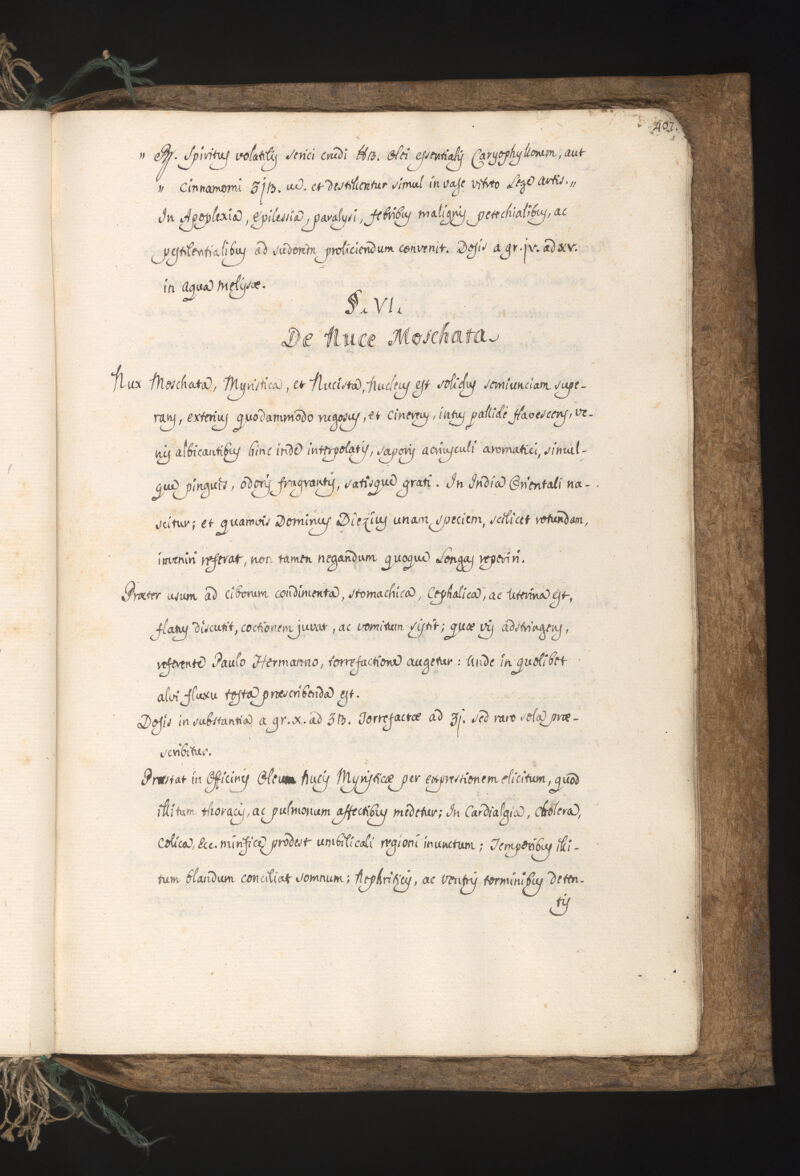 407.
" ℞. Spiritus volatilis serici crudi ℔ß. Olei essentialis Caryophyllorum, aut
" Cinnamomi ʒjß. ut. et destillentur simul in vase vitreo Lege artis.„
In Apoplexia, epilessia, paralysi, febribus malignis petechialibus, ac
pestilentialibus ad sudorem proliciendum convenit. Dosis a gr. jv. ad xv.
in aqua Melyssæ.
§. VI.
De Nuce Moschata
Nux Moschata, Myristica, et Nucista, Nucleus est solidus semiunciam supe-
rans, exterius quodammodo rugosus, et cinereus, intus pallidè flavescens, ve-
nis albicantibus hinc inde interpolatis, saporis acriusculi aromatici, simul-
que pinguis, odoris fragrantis, satisque grati. In India Orientali na-
scitur; et quamvis Dominus Diezius unam speciem, scilicet rotundam,
inveniri referat, non tamen negandum quoque Longas reperiri.
Præter usum ad ciborum condimenta, stomachica, Cephalica, ac Uterina est,
flatus discutit, coctionem juvat, ac vomitum sistit; quæ vis adstringens,
referente Paulo Hermanno, torrefactione augetur: Unde in quolibet
alvi fluxu tosta præscribenda est.
Dosis in substantia a gr. x. ad ʒß. Torrefactæ ad ʒj. sed raro sola præ-
scribitur.
Præstat in Officinis Oleum Nucis Myristicæ per expressionem elicitum, quod
illitum thoracis, ac pulmonum affectibus medetur; In Cardialgia, Cholera,
Colica, &c. mirificè prodest umbilicali regioni inunctum; Temporibus illi-
tum blandum conciliat somnum; Nephriticis, ac ventris torminibus deten-
tis